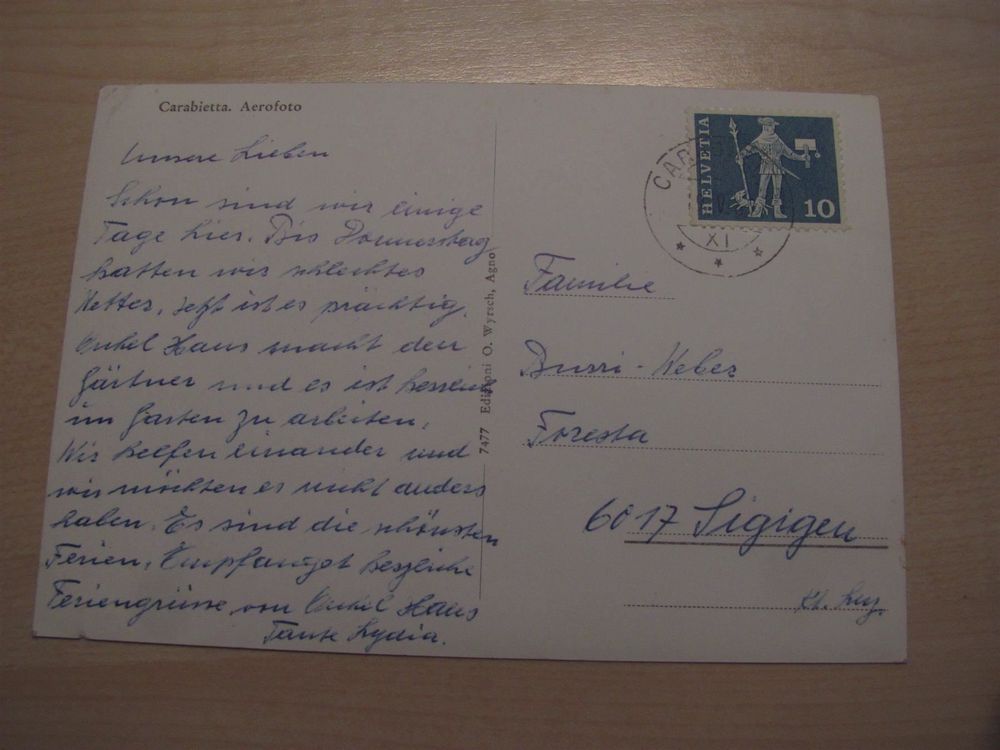 Carabietta. Aerofoto
Unsere Lieben
Schon sind wir einige
Tage hier. Bis Donnerstag
hatten wir schlechtes
Wetter, jetzt ist es prächtig.
Onkel Hans macht den
Gärtner und es ist herrlich
im Garten zu arbeiten.
Wir helfen einander und
wir möchten es nicht anders
haben. Es sind die schönsten
Ferien. Empfanget herzliche
Feriengrüsse von Onkel Hans
Tante Lydia.
7477 Edizioni O. Wyrsch, Agno
HELVETIA
10
XI
Familie
Burri-Weber
Foresta
6017 Sigigen
Kt. Luz.